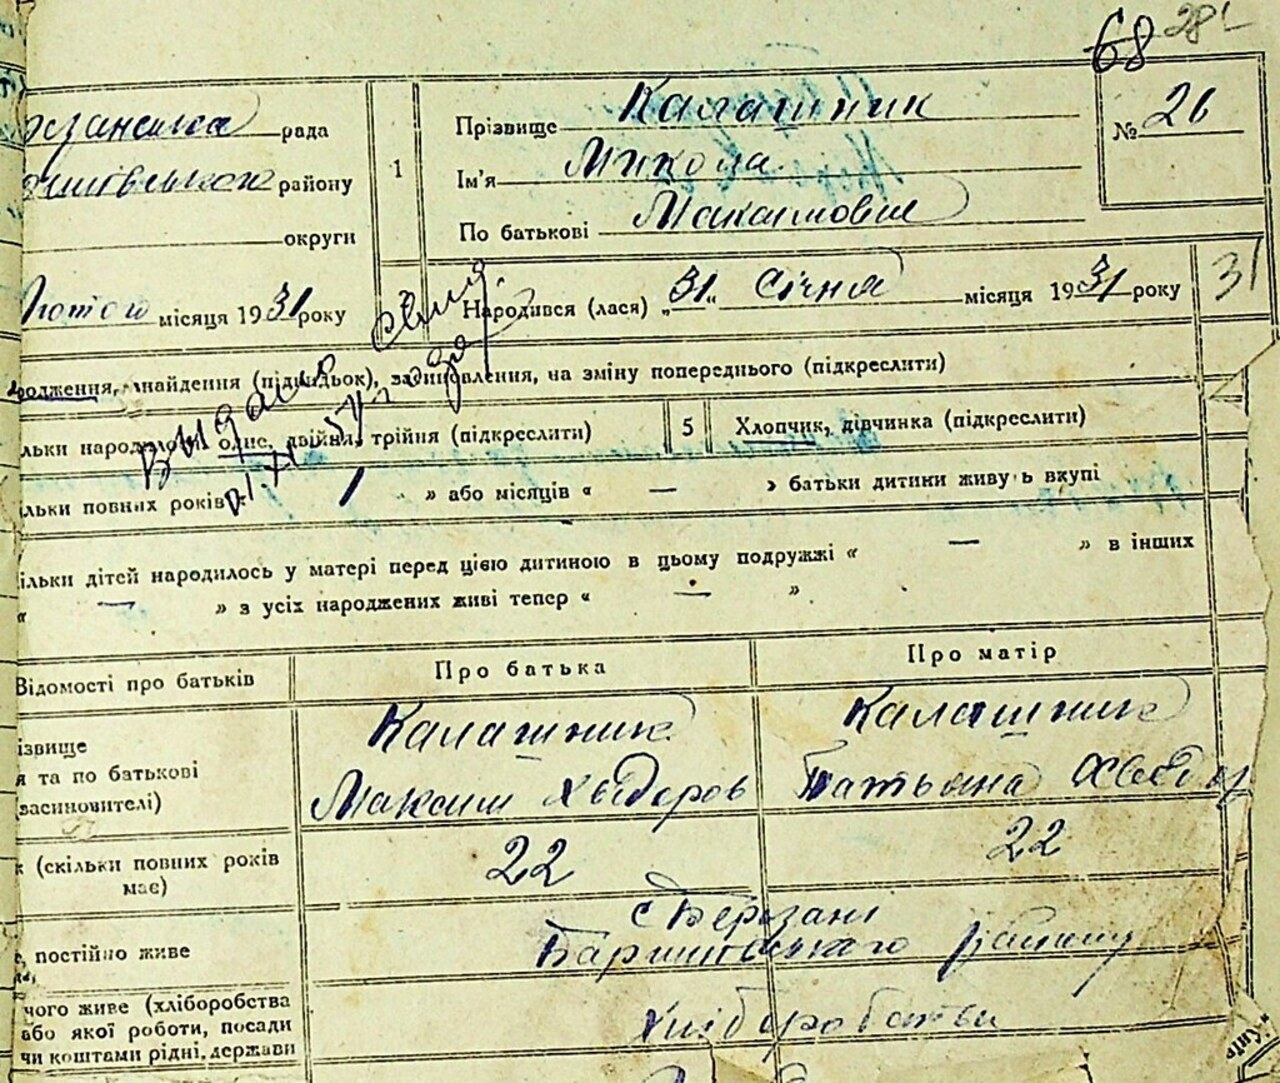 68 28
рзанська рада
1
Прізвище Калашник
№ 26
Ім'я Микола
ишівського району
По батькові Максимович
округи
Лютого місяця 1931 року
Народився (лася) „31“ Січня місяця 1931 року
31
родження, знайдення (підкидьок), задиновлення, на зміну попереднього (підкреслити)
льки народилося: одне, двійня, трійня (підкреслити)
5 Хлопчик, дівчинка (підкреслити)
ільки повних років 1 » або місяців « — » батьки дитини живуть вкупі
ільки дітей народилось у матері перед цією дитиною в цьому подружжі « — » в інших
« — » з усіх народжених живі тепер « — »
Відомості про батьків
Про батька
Про матір
ізвище
я та по батькові
засиновителі)
Калашник
Максим Хведоров
Калашник
Татьяна Хведор
к (скільки повних років
має)
22
22
, постійно живе
с Березані
Баришівського району
чого живе (хліборобства
або якої роботи, посади
чи коштами рідні, держави
Хліборобства